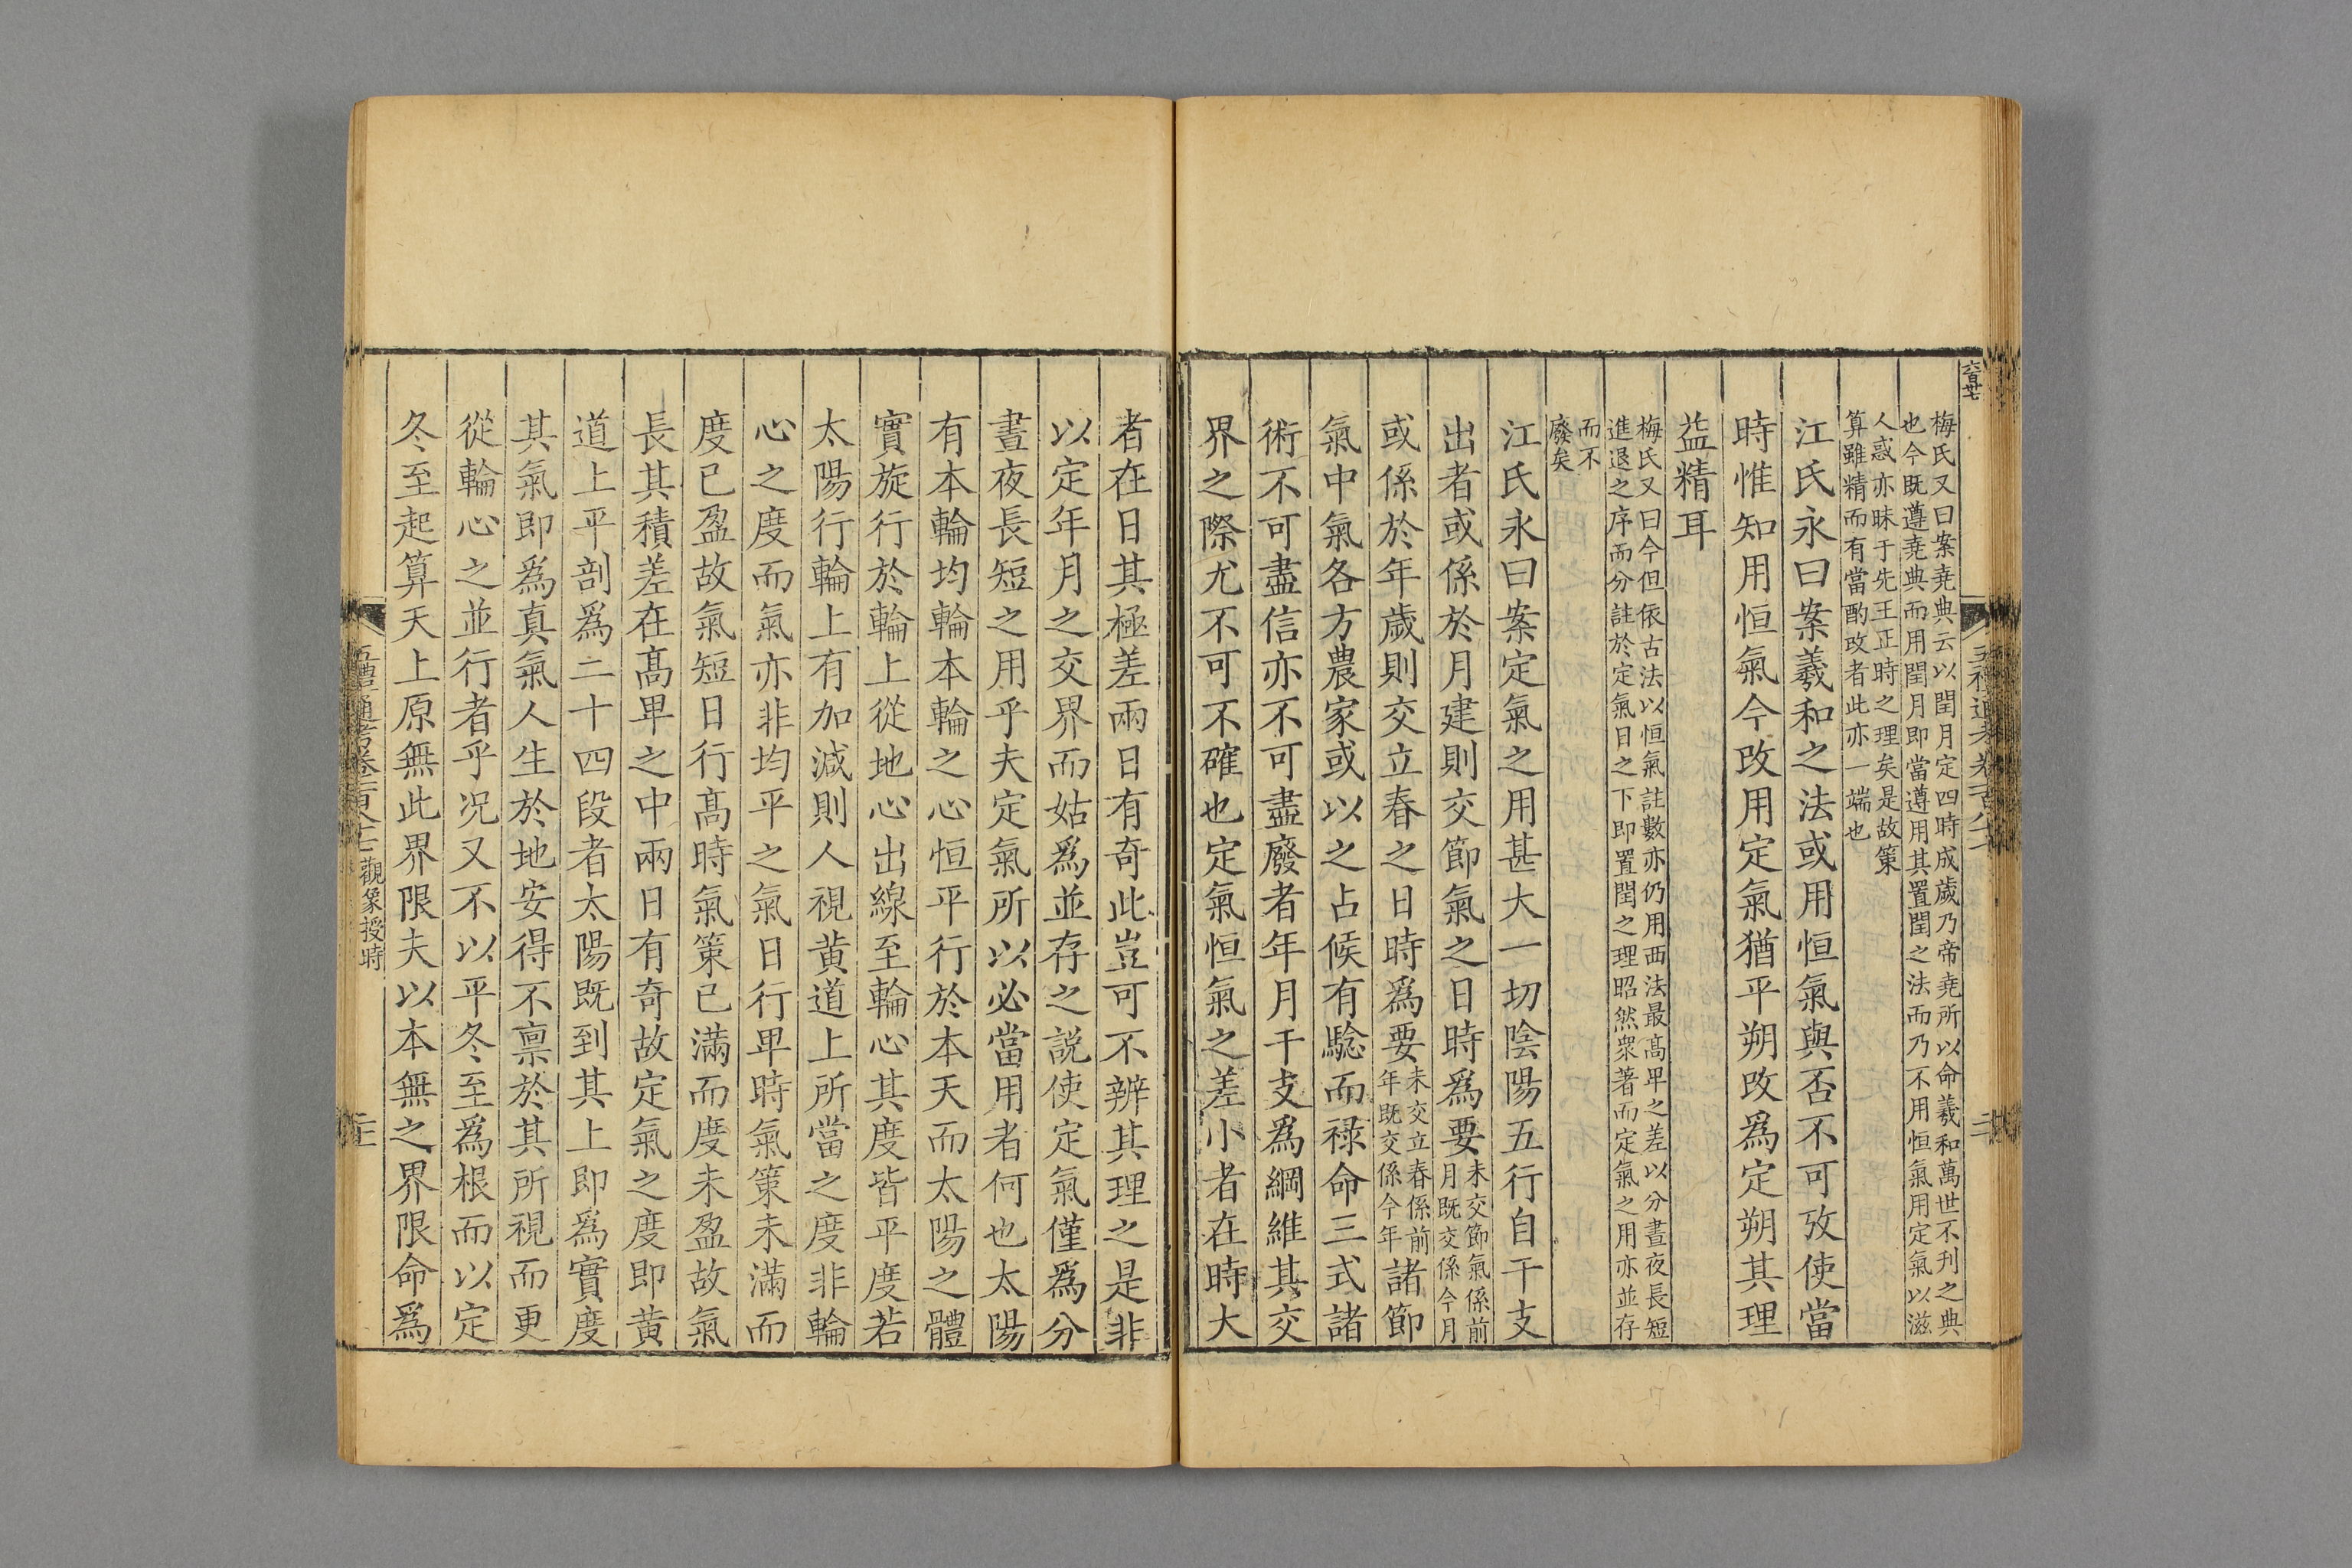 六百廿七
梅氏又曰案堯典云以閏月定四時成歲乃帝堯所以命羲和萬世不刋之典
也今既遵堯典而用閏月即當遵用其置閏之法而乃不用恒氣用定氣以滋
人惑亦昧于先王正時之理矣是故策
算雖精而有當酌改者此亦一端也
江氏永曰案羲和之法或用恒氣與否不可攷使當
時惟知用恒氣今改用定氣猶平朔改爲定朔其理
益精耳
梅氏又曰今但依古法以恒氣註數亦仍用西法最高卑之差以分晝夜長短
進退之序而分註於定氣日之下即置閏之理昭然衆著而定氣之用亦並存
而不
廢矣
江氏永曰案定氣之用甚大一切陰陽五行自干支
出者或係於月建則交節氣之日時爲要未交節氣係前月既交係今月
或係於年歲則交立春之日時爲要未交立春係前年既交係今年諸節
氣中氣各方農家或以之占候有驗而祿命三式諸
術不可盡信亦不可盡廢者年月干支爲綱維其交
界之際尤不可不確也定氣恒氣之差小者在時大
者在日其極差兩日有奇此豈可不辨其理之是非
以定年月之交界而姑爲並存之說使定氣僅爲分
晝夜長短之用乎夫定氣所以必當用者何也太陽
有本輪均輪本輪之心恒平行於本天而太陽之體
實旋行於輪上從地心出線至輪心其度皆平度若
太陽行輪上有加減則人視黃道上所當之度非輪
心之度而氣亦非均平之氣日行卑時氣策未滿而
度已盈故氣短日行高時氣策已滿而度未盈故氣
長其積差在高卑之中兩日有奇故定氣之度即黃
道上平剖爲二十四段者太陽既到其上即爲實度
其氣即爲真氣人生於地安得不禀於其所視而更
從輪心之並行者乎况又不以平冬至爲根而以定
冬至起算天上原無此界限夫以本無之界限命爲
觀象授時